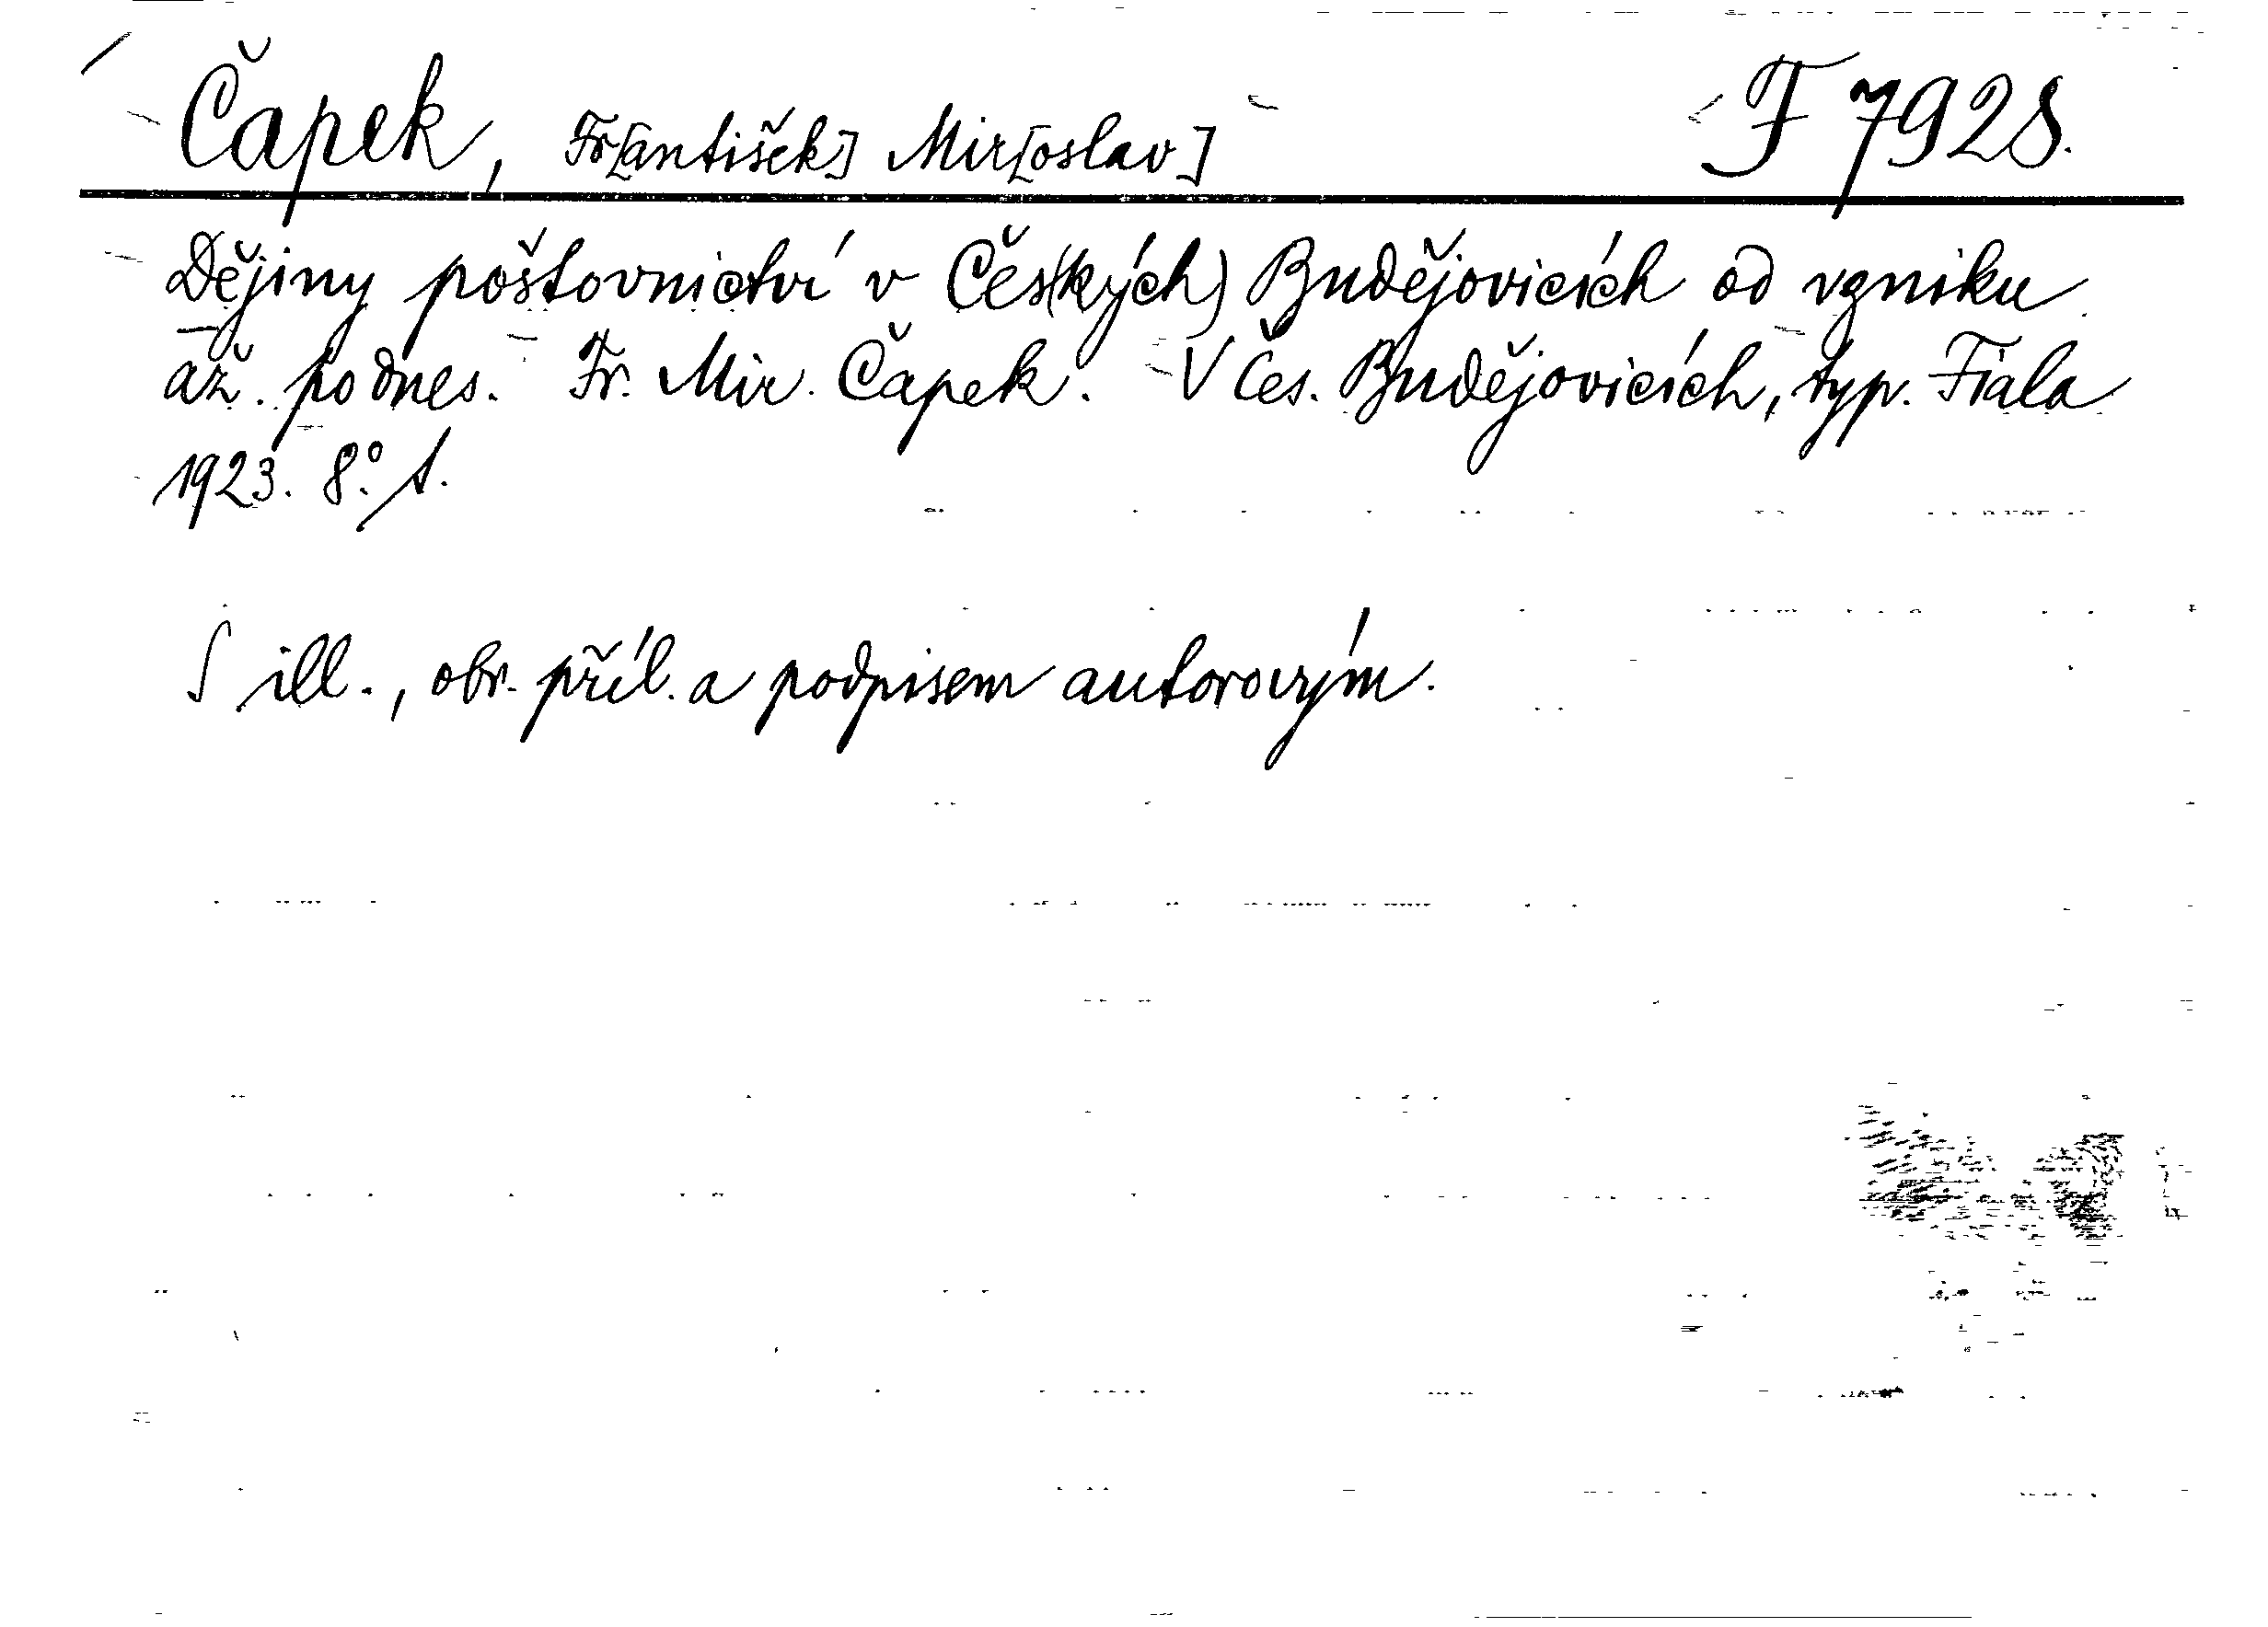 Čapek, Fr[antišek] Mir[oslav] F 7928.
Dějiny poštovnictví v Čes(kých) Budějovicích od vzniku
až podnes. Fr. Mir. Čapek. V Čes. Budějovicích, typ. Fiala
1923. 8.° 1.
S ill., obr. příl. a podpisem autorovým.